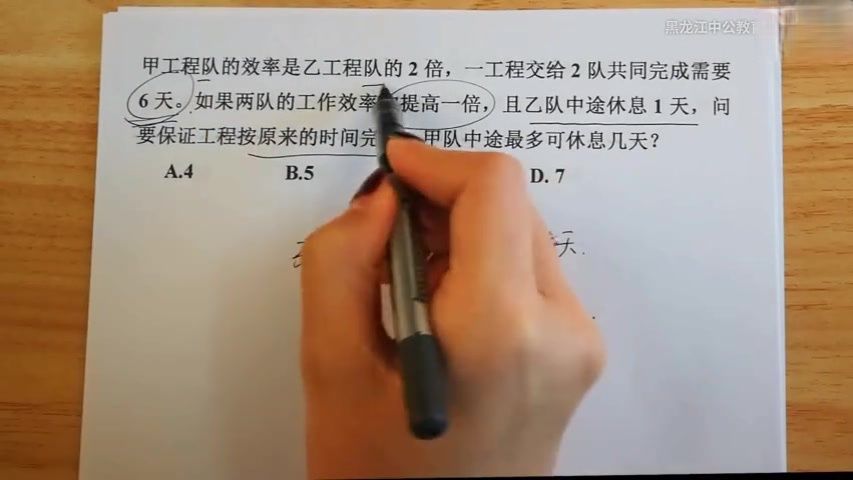 黑龙江中公教育
甲工程队的效率是乙工程队的 2 倍，一工程交给 2 队共同完成需要
6 天。如果两队的工作效率 提高一倍，且乙队中途休息 1 天，问
要保证工程按原来的时间完 甲队中途最多可休息几天？
A.4 B.5 D. 7
天.